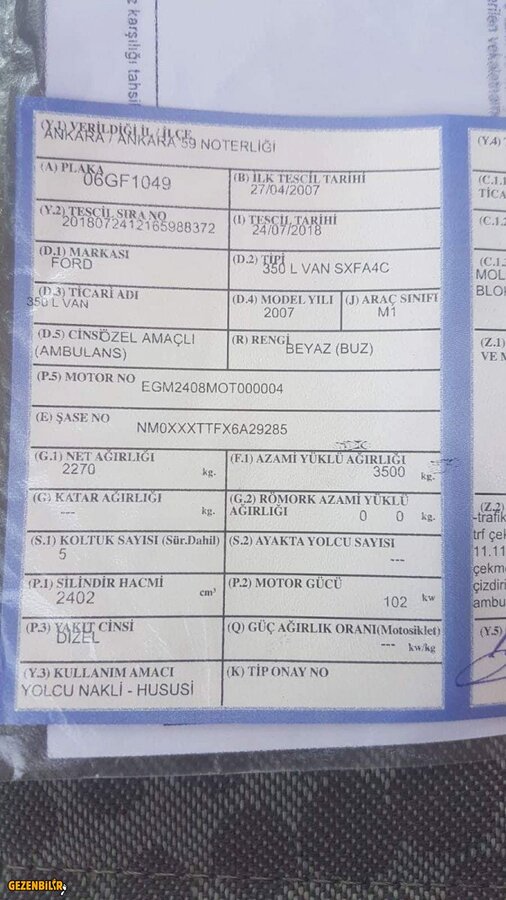 z karşılığı tahsi
erilen vekaletnam
(Y.1) VERİLDİĞİ İL / İLÇE
ANKARA / ANKARA 59 NOTERLİĞİ
(A) PLAKA
06GF1049
(B) İLK TESCİL TARİHİ
27/04/2007
(Y.2) TESCİL SIRA NO
2018072412165988372
(I) TESCİL TARİHİ
24/07/2018
(D.1) MARKASI
FORD
(D.2) TİPİ
350 L VAN SXFA4C
(D.3) TİCARİ ADI
350 L VAN
(D.4) MODEL YILI
2007
(J) ARAÇ SINIFI
M1
(D.5) CİNSİ
ÖZEL AMAÇLI
(AMBULANS)
(R) RENGİ
BEYAZ (BUZ)
(P.5) MOTOR NO
EGM2408MOT000004
(E) ŞASE NO
NM0XXXTTFX6A29285
(G.1) NET AĞIRLIĞI
2270 kg.
(F.1) AZAMİ YÜKLÜ AĞIRLIĞI
3500 kg.
(G) KATAR AĞIRLIĞI
--- kg.
(G.2) RÖMORK AZAMİ YÜKLÜ
AĞIRLIĞI 0 0 kg.
(S.1) KOLTUK SAYISI (Sür.Dahil)
5
(S.2) AYAKTA YOLCU SAYISI
---
(P.1) SİLİNDİR HACMİ
2402 cm³
(P.2) MOTOR GÜCÜ
102 kw
(P.3) YAKIT CİNSİ
DİZEL
(Q) GÜÇ AĞIRLIK ORANI(Motosiklet)
--- kw/kg
(Y.3) KULLANIM AMACI
YOLCU NAKLİ - HUSUSİ
(K) TİP ONAY NO
(Y.4)
(C.1.
TİCA
(C.1.2
(C.1.3
MOL
BLOK
(Z.1)
VE M
(Z.2)
-trafik
trf çek
11.11
çekme
çizdiri
ambu
(Y.5)
GEZENBİLİR